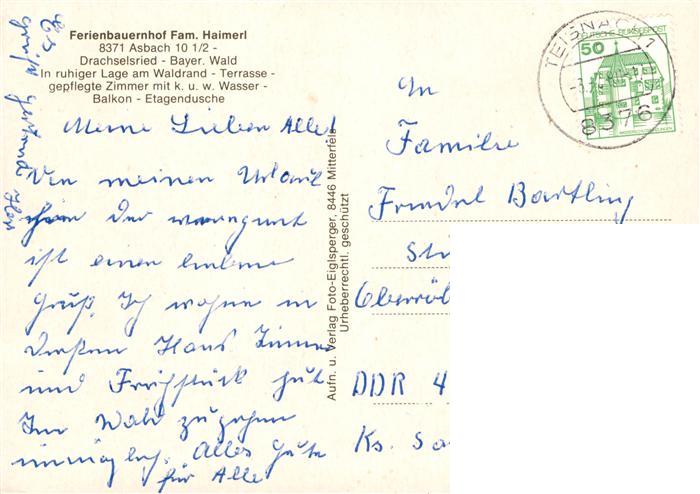 Ferienbauernhof Fam. Haimerl
8371 Asbach 10 1/2 -
Drachselsried - Bayer. Wald
In ruhiger Lage am Waldrand - Terrasse -
gepflegte Zimmer mit k. u. w. Wasser -
Balkon - Etagendusche
Meine Lieben Alle!
Von meinen Urlaub
der verregnet
ist einen lieben
Gruß. Ich wohne in
diesem Haus Zimmer
und Frühstück gut
Im Wald zu gehen
unmöglich. Alles Gute
für Alle
Es grüßt Gertrud
Aufn. u. Verlag Foto-Eiglsperger, 8446 Mitterfels
Urheberrechtl. geschützt
TEISNACH 1
8376
50
DEUTSCHE BUNDESPOST
In
Familie
Friedel Bartling
Str
Oberröbl
DDR 4
Ks. Sa